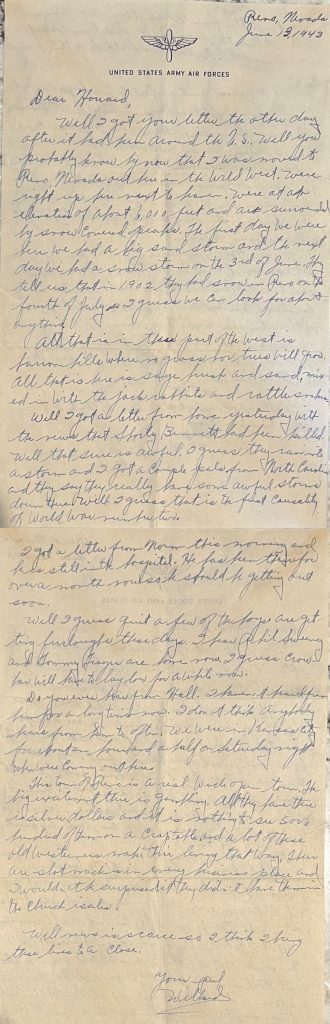 Reno, Nevada
June 13, 1943
UNITED STATES ARMY AIR FORCES
Dear Howard,
Well I got your letter the other day
after it had been around the U.S. Well you
probably know by now that I was moved to
Reno Nevada out here in the Wild West. Were
right up here next to heaven. Were at an
elevation of about 6,000 feet and are surrounded
by snow covered peaks. The first day we were
here we had a big sand storm and the next
day we had a snow storm on the 3rd of June. They
tell us, that in 1902 they had snow in Reno on the
fourth of July so I guess we can look for about
anything.
All that is in this part of the west is
barron hills where no grass nor trees will grow.
All that is here is sage brush and sand, mix-
ed in with the jack rabbits and rattle snakes.
Well I got a letter from home yesterday with
the news that Shorty Bennett had been killed.
Well that sure is awful. I guess they ran into
a storm and I got a couple pals from North Carolina
and they say they really have some awful storms
down there. Well I guess that is the first causality
of World War number two.
I got a letter from Norm this morning and
he is still in the hospital. He has been there for
over a month now so he should be getting out
soon.
Well I guess quit a few of the boys are get-
ting furloughs these days. I hear Phil Sweeney
and Sammy are home now. I guess
will have to lay low for awhile now.
Do you ever hear from Hall. I haven't heard from
him for a long time now. I don't think anybody
hears from him to often. We were in Kansas City
for about an hour and a half on Saturday night
when were coming out here.
This town of Reno is a real wide open town. The
big excitement there is gambling. All they have there
is silver dollars and it is nothing to see 500
hundred of them on a crap table and a lot of these
old westerners make their living that way. There
are slot machines in every business place and
I wouldn't be surprised if they didn't have them in
the church isles.
Well news is scarce so I think I bring
these lines to a close.
Your pal
Willard